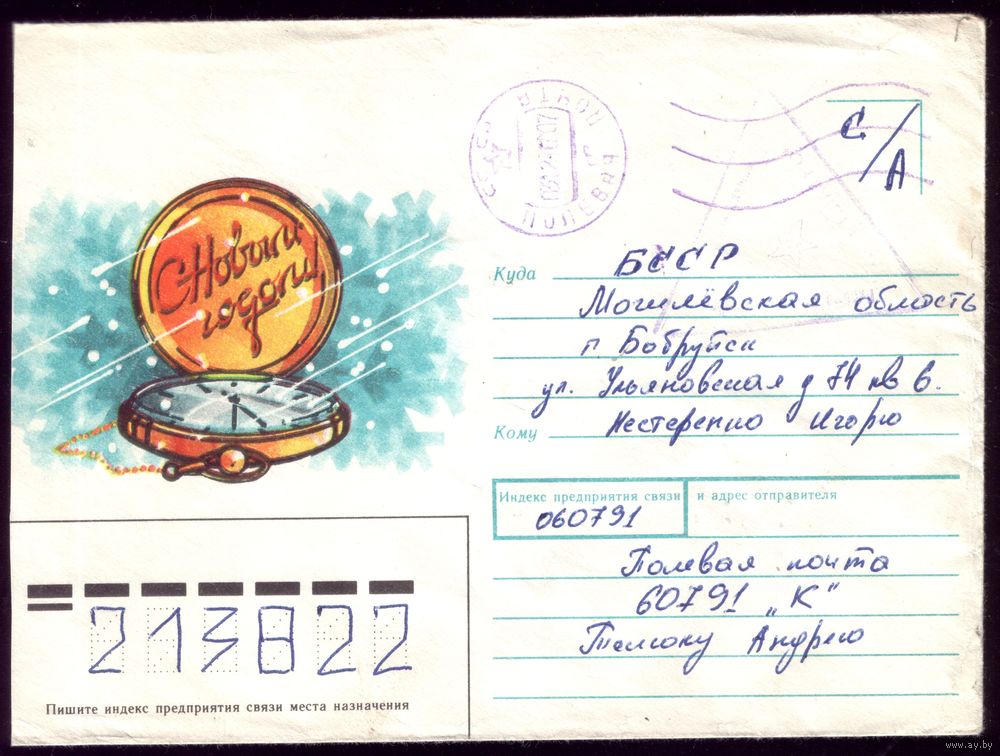 С Новым
годом!
СССР
ПОЧТА
ПОЛЕВАЯ
С/А
Куда БССР
Могилёвская область
г Бобруйск
ул. Ульяновская д 74 кв 6.
Кому Нестеренко Игорю
Индекс предприятия связи и адрес отправителя
060791
Полевая почта
60791 „К"
Андрею
213822
Пишите индекс предприятия связи места назначения
www.ay.by